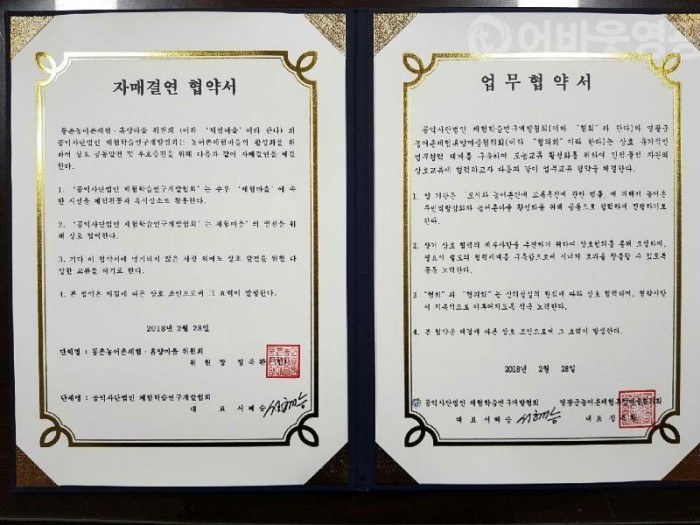 어바웃영광
자매결연 협약서
동촌농어촌체험·휴양마을 위원회 (이하 '체험마을'이라 한다) 와
공익사단법인 체험학습연구개발협회는 농어촌체험마을의 활성화를 위
하여 상호 공동발전 및 우호증진을 위해 다음과 같이 자매결연을 체결
한다.
1. '공익사단법인 체험학습연구개발협회' 는 추후 '체험마을' 에 속
한 시설을 체험활동과 휴식장소로 활용한다.
2. '공익사단법인 체험학습연구개발협회' 는 체험마을' 의 발전을 위
해 상호 협력한다.
3. 기타 이 협약서에 명기되지 않은 사항 외에도 상호 발전을 위한 다
양한 교류를 하기로 한다.
4. 본 협약은 체결에 따른 상호 조인으로써 그 효력이 발생한다.
2018년 2월 28일
단체명 : 동촌농어촌체험·휴양마을 위원회
위 원 장
단체명 : 공익사단법인 체험학습연구개발협회
대 표 서 혜 승
업 무 협 약 서
공익사단법인 체험학습연구개발협회[이하 "협회" 라 한다]와 영광군
농어촌체험휴양마을협의회[이하 "협의회" 이라 한다]는 상호 유기적인
업무협약 체계를 구축하여 도농교류 활성화를 위하여 인적·물적 자원의
상호교류에 협력하고자 다음과 같이 업무교류 협약을 체결한다.
1. 양 기관은 도시와 농어촌간에 교류촉진에 관한 법률 에 의해서 농어촌
주민역량강화와 농어촌마을 활성화를 위해 공동으로 협력하여 진행하기로
한다.
2. 상기 상호 협력의 세부사항을 추진하기 위하여 상호협의를 통해 조정하며,
필요시 별도의 협력체계를 구축함으로써 시너지 효과를 창출할 수 있도록
공동 노력한다.
3 "협회" 와 "협의회" 는 신의성실의 원칙에 따라 상호 협력하며, 협약사항
이 지속적으로 이루어지도록 적극 노력한다.
4. 본 협약은 체결에 따른 상호 조인으로써 그 효력이 발생한다.
2018년 2월 28일
공익사단법인 체험학습연구개발협회 영광군농어촌체험·휴양마을협의회
대 표 서 혜 승 대 표